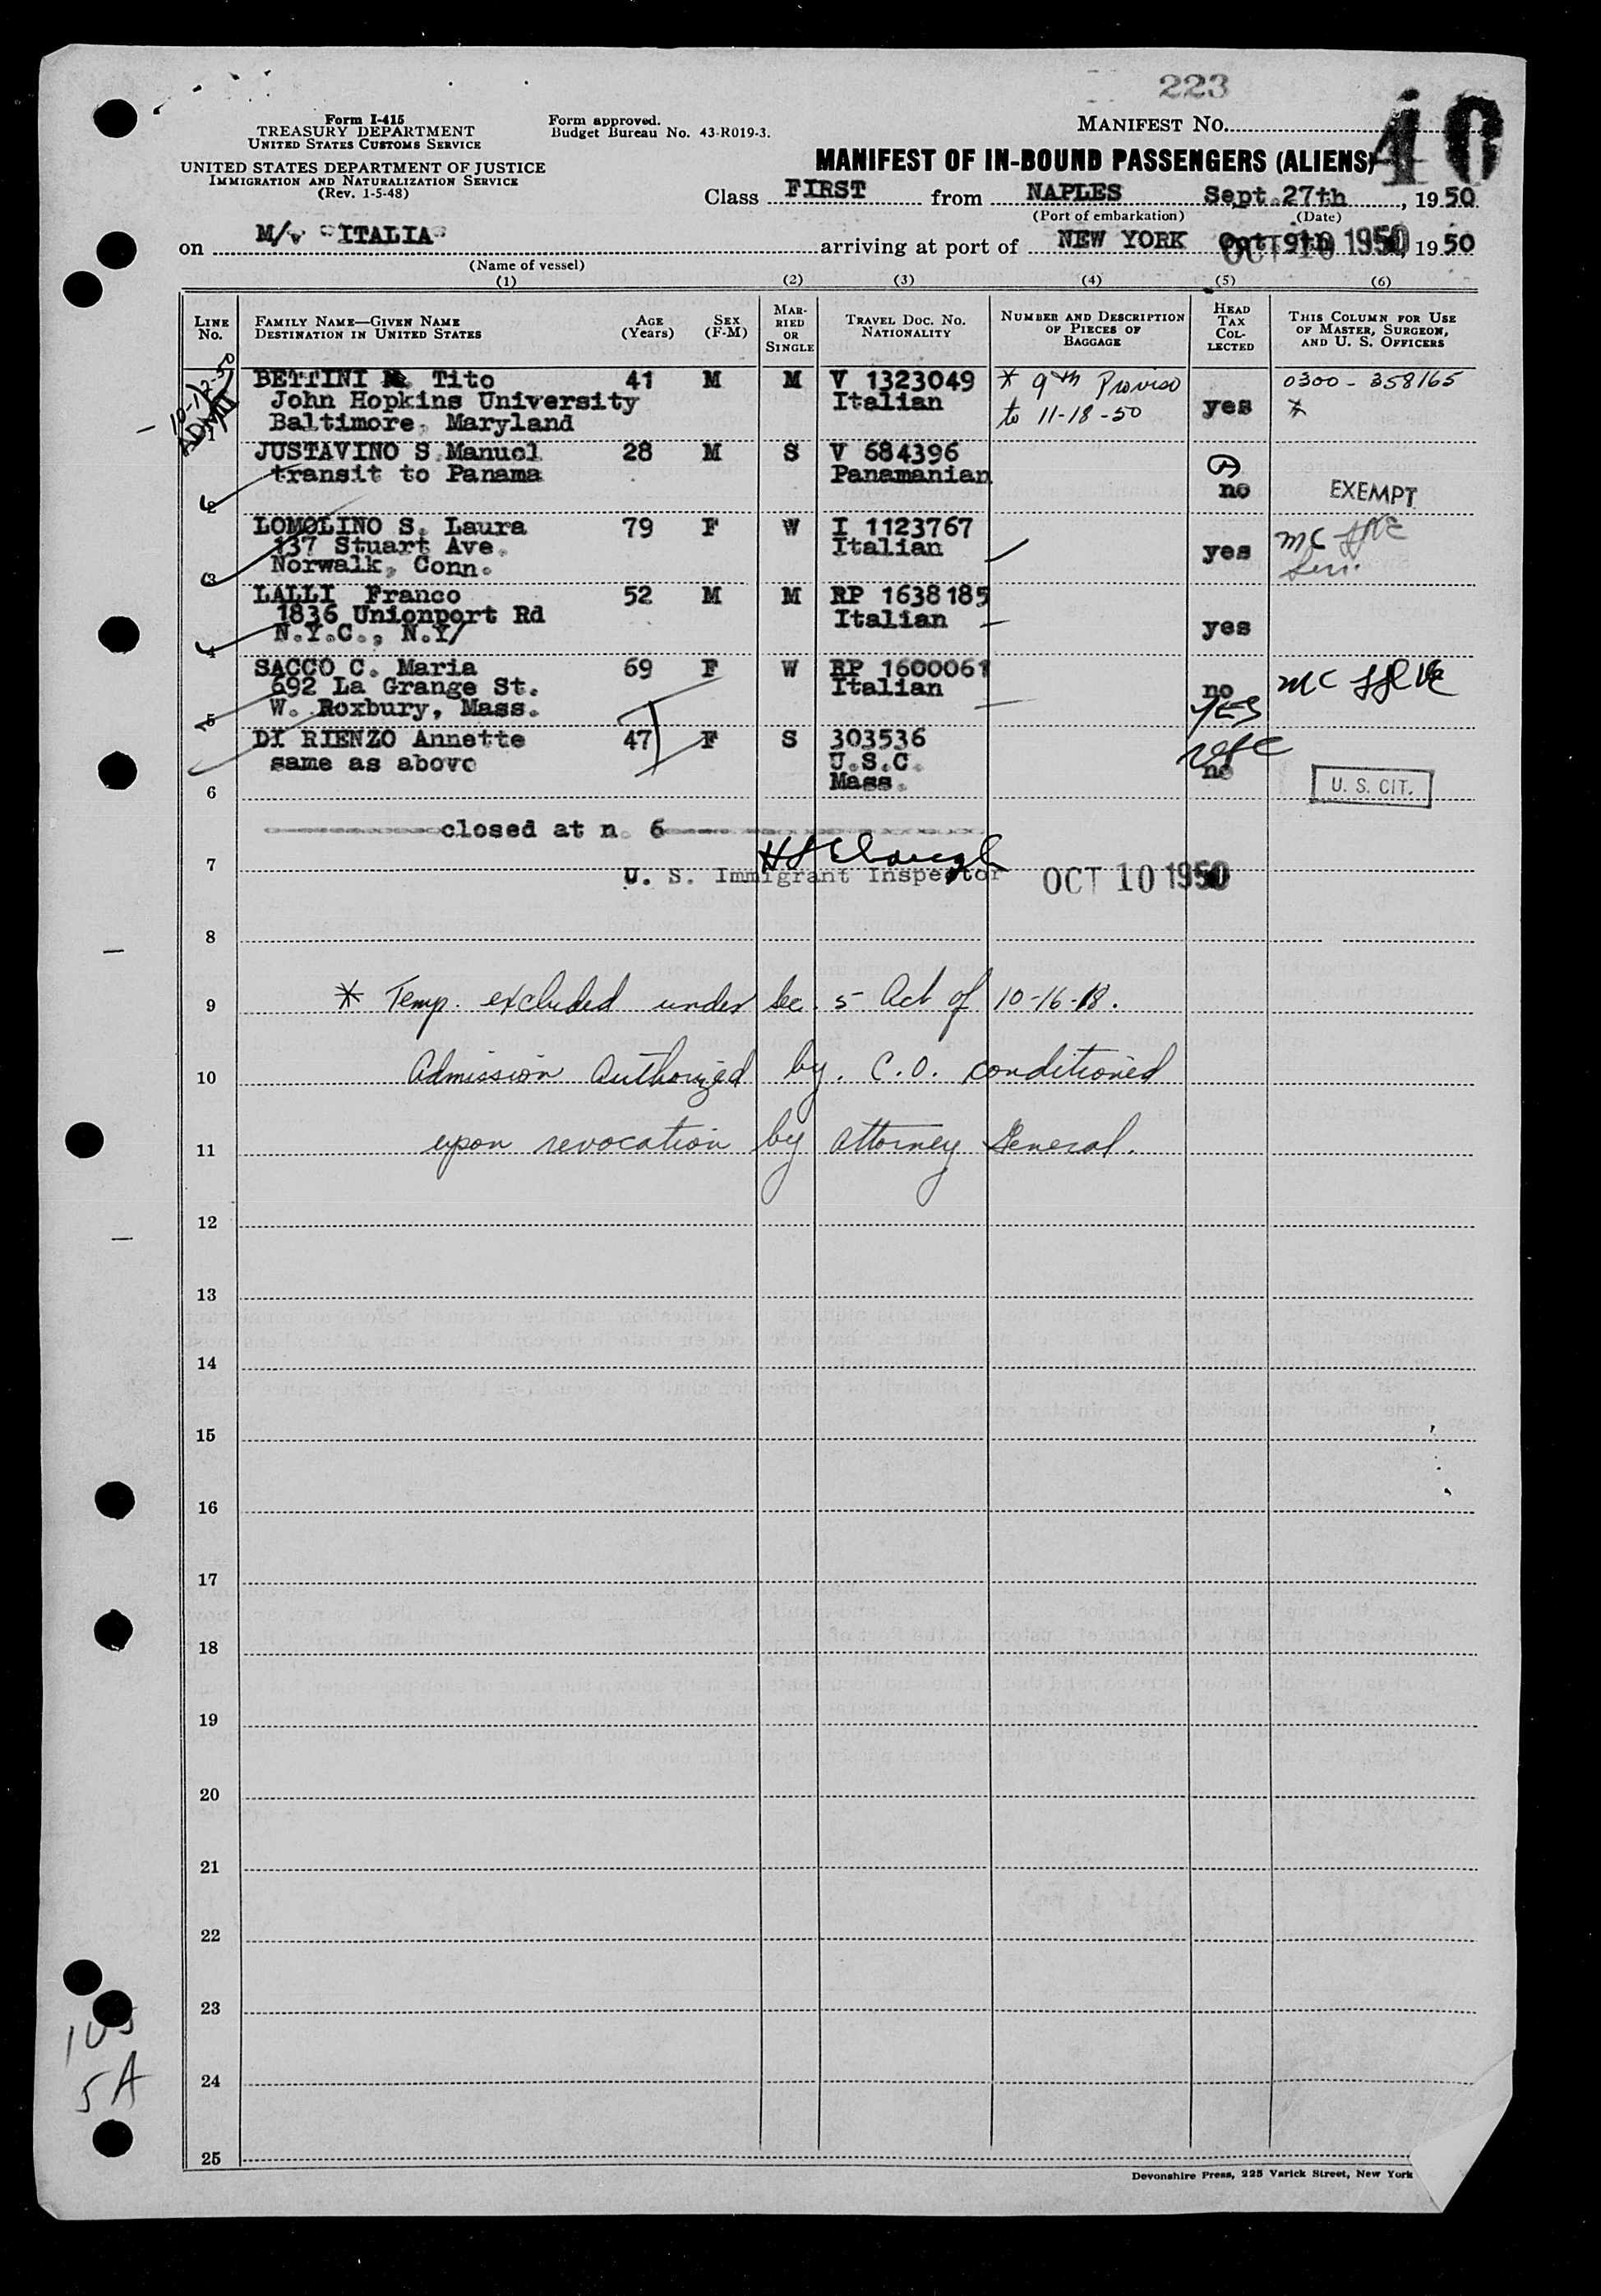 223
Form I-415
TREASURY DEPARTMENT
UNITED STATES CUSTOMS SERVICE
Form approved.
Budget Bureau No. 43-R019-3.
MANIFEST No.
40
UNITED STATES DEPARTMENT OF JUSTICE
IMMIGRATION AND NATURALIZATION SERVICE
(Rev. 1-5-48)
MANIFEST OF IN-BOUND PASSENGERS (ALIENS)
Class FIRST from NAPLES Sept. 27th, 1950
(Port of embarkation) (Date)
on M/v "ITALIA" arriving at port of NEW YORK Oct 9th OCT 10 1950, 1950
(Name of vessel)
(1) (2) (3) (4) (5) (6)
LINE No. FAMILY NAME—GIVEN NAME DESTINATION IN UNITED STATES AGE (Years) SEX (F-M) MARRIED OR SINGLE TRAVEL DOC. NO. NATIONALITY NUMBER AND DESCRIPTION OF PIECES OF BAGGAGE HEAD TAX COLLECTED THIS COLUMN FOR USE OF MASTER, SURGEON, AND U. S. OFFICERS
10-12-50
ADMIT
1 BETTINI Tito 41 M M V 1323049 * 9th Proviso 0300-358165
John Hopkins University Italian to 11-18-50 yes *
Baltimore, Maryland
JUSTAVINO S Manuel 28 M S V 684396
transit to Panama Panamanian
2 no EXEMPT
LOMOLINO S. Laura 79 F W I 1123767
137 Stuart Ave. Italian yes mc
3 Norwalk, Conn.
LALLI Franco 52 M M RP 1638185
1836 Unionport Rd Italian
4 N.Y.C., N.Y/ yes
SACCO C. Maria 69 F W RP 1600061
692 La Grange St. Italian no mc
5 W. Roxbury, Mass. YES
DI RIENZO Annette 47 F S 303536
same as above U.S.C. no
6 Mass. U. S. CIT.
closed at n. 6
7 U. S. Immigrant Inspector OCT 10 1950
8
9 * Temp. excluded under Sec. 5 Act of 10-16-18.
10 Admission Authorized by. C.O. conditioned
11 upon revocation by Attorney General.
12
13
14
15
16
17
18
19
20
21
22
23
24
25
5A
Devonshire Press, 225 Varick Street, New York